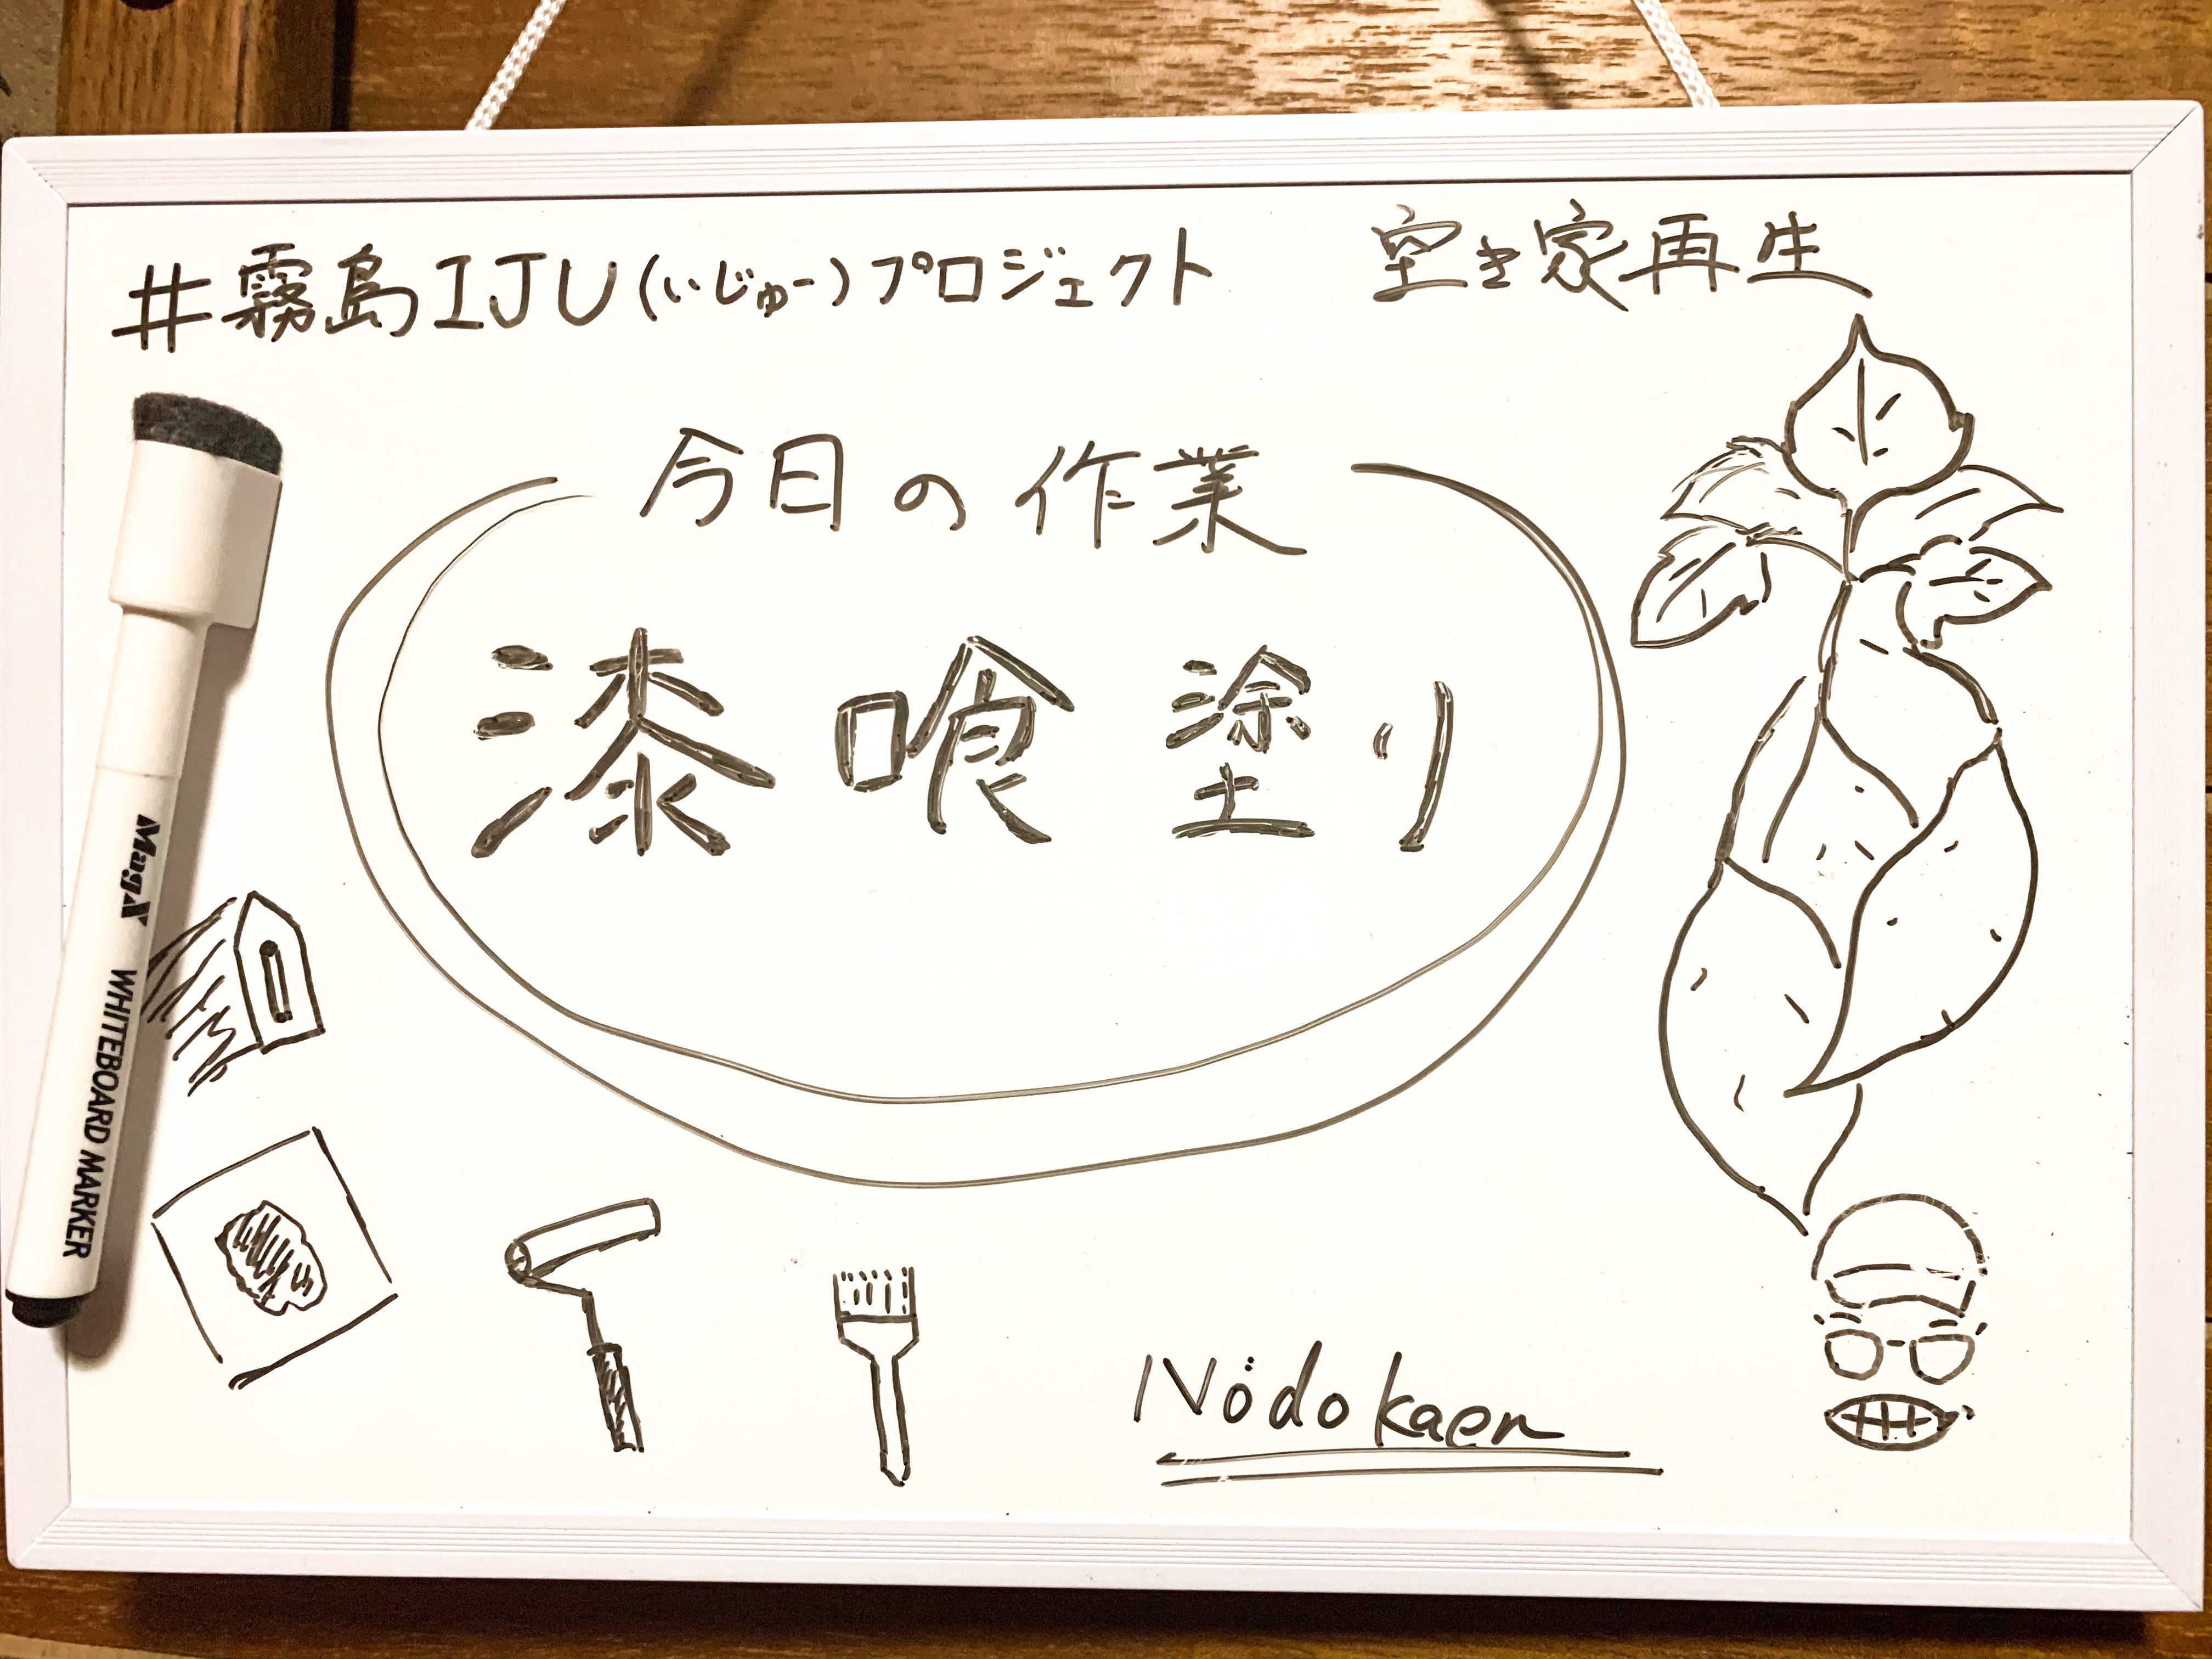 #霧島IJU(いじゅー)プロジェクト 空き家再生
今日の作業
漆喰塗り
Nödokaen
MagX WHITEBOARD MARKER